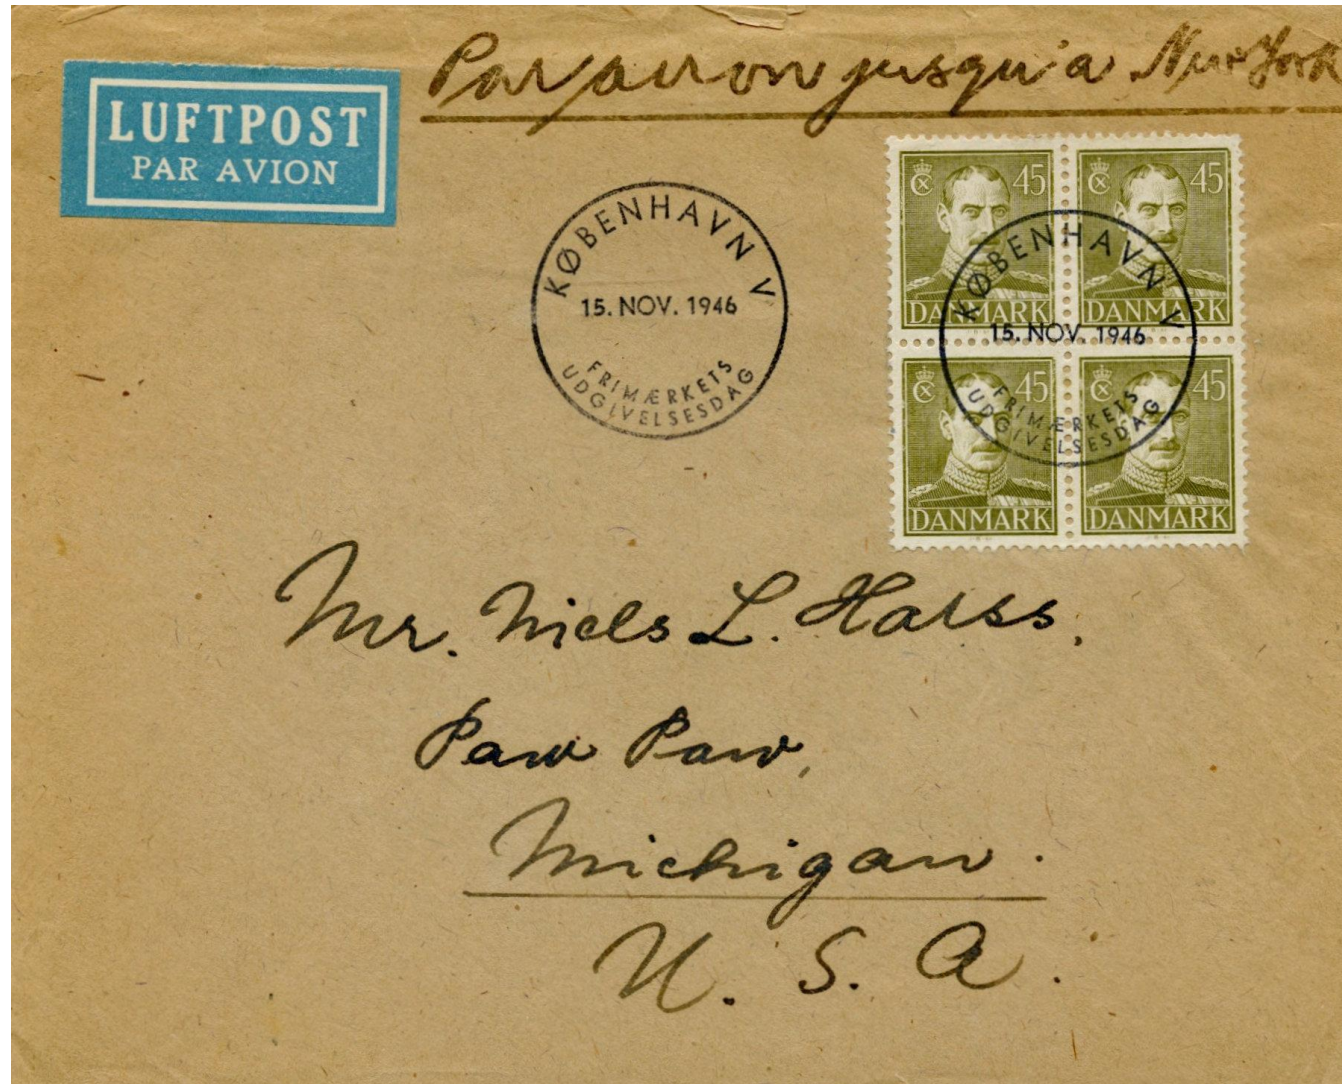 Par avion jusqu'a New York
LUFTPOST
PAR AVION
KØBENHAVN V
15. NOV. 1946
FRIMÆRKETS
UDGIVELSESDAG
45
DANMARK
45
DANMARK
KØBENHAVN V
15. NOV. 1946
FRIMÆRKETS
UDGIVELSESDAG
45
DANMARK
45
DANMARK
Mr. Niels L. Harss,
Paw Paw,
Michigan.
U. S. A.